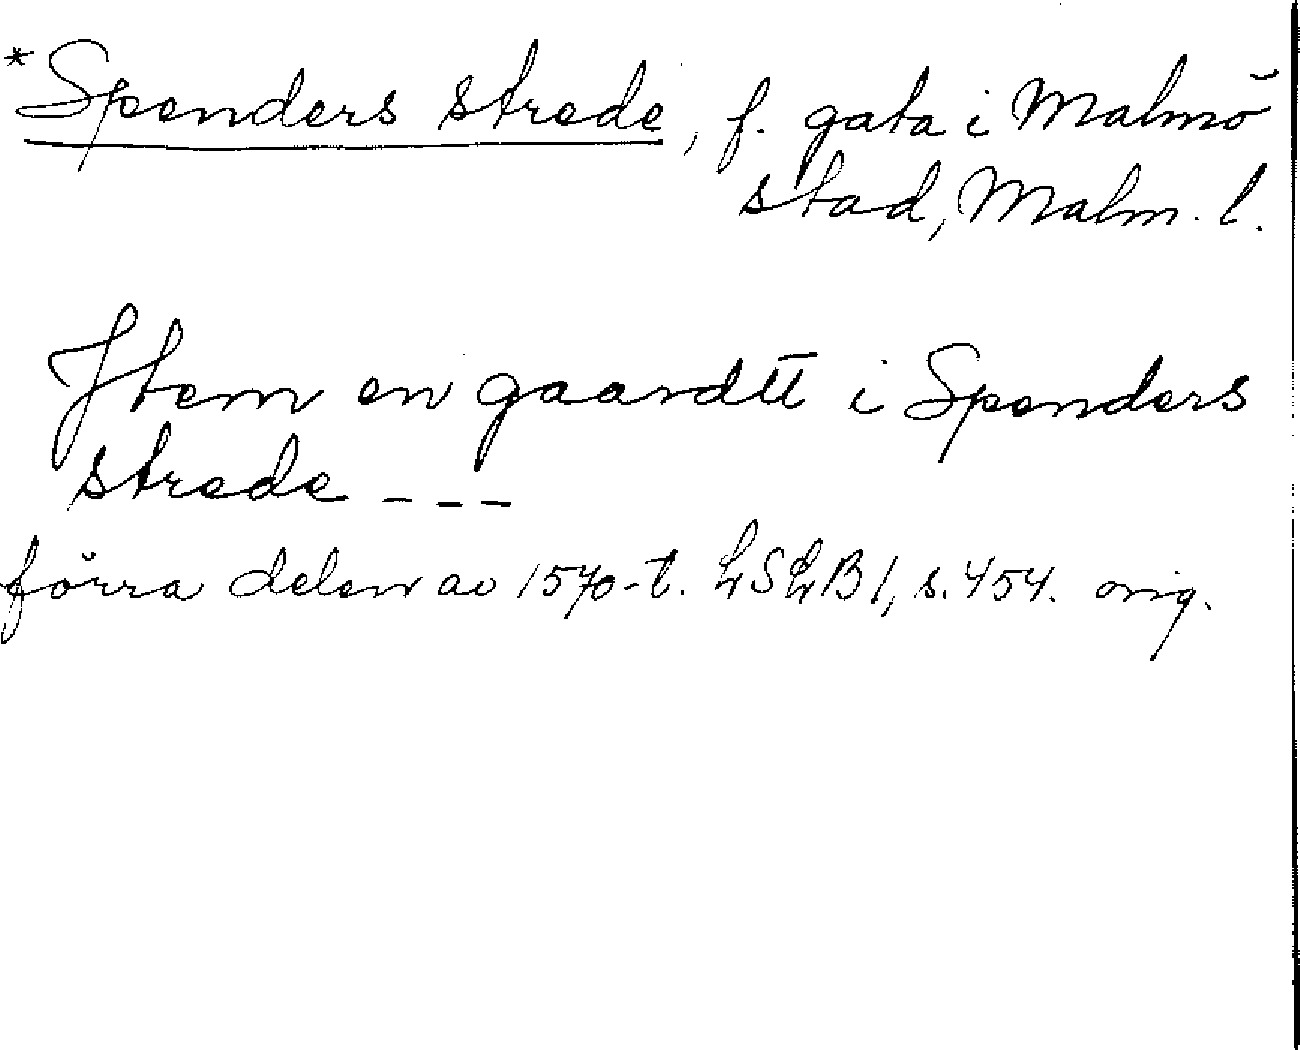 *Spenders strede, f. gata i Malmö
stad, Malm. l.
Jtem en gaardtt i Spenders
strede ---
förra delen av 1570-t. LSLB 1, s. 454. orig.